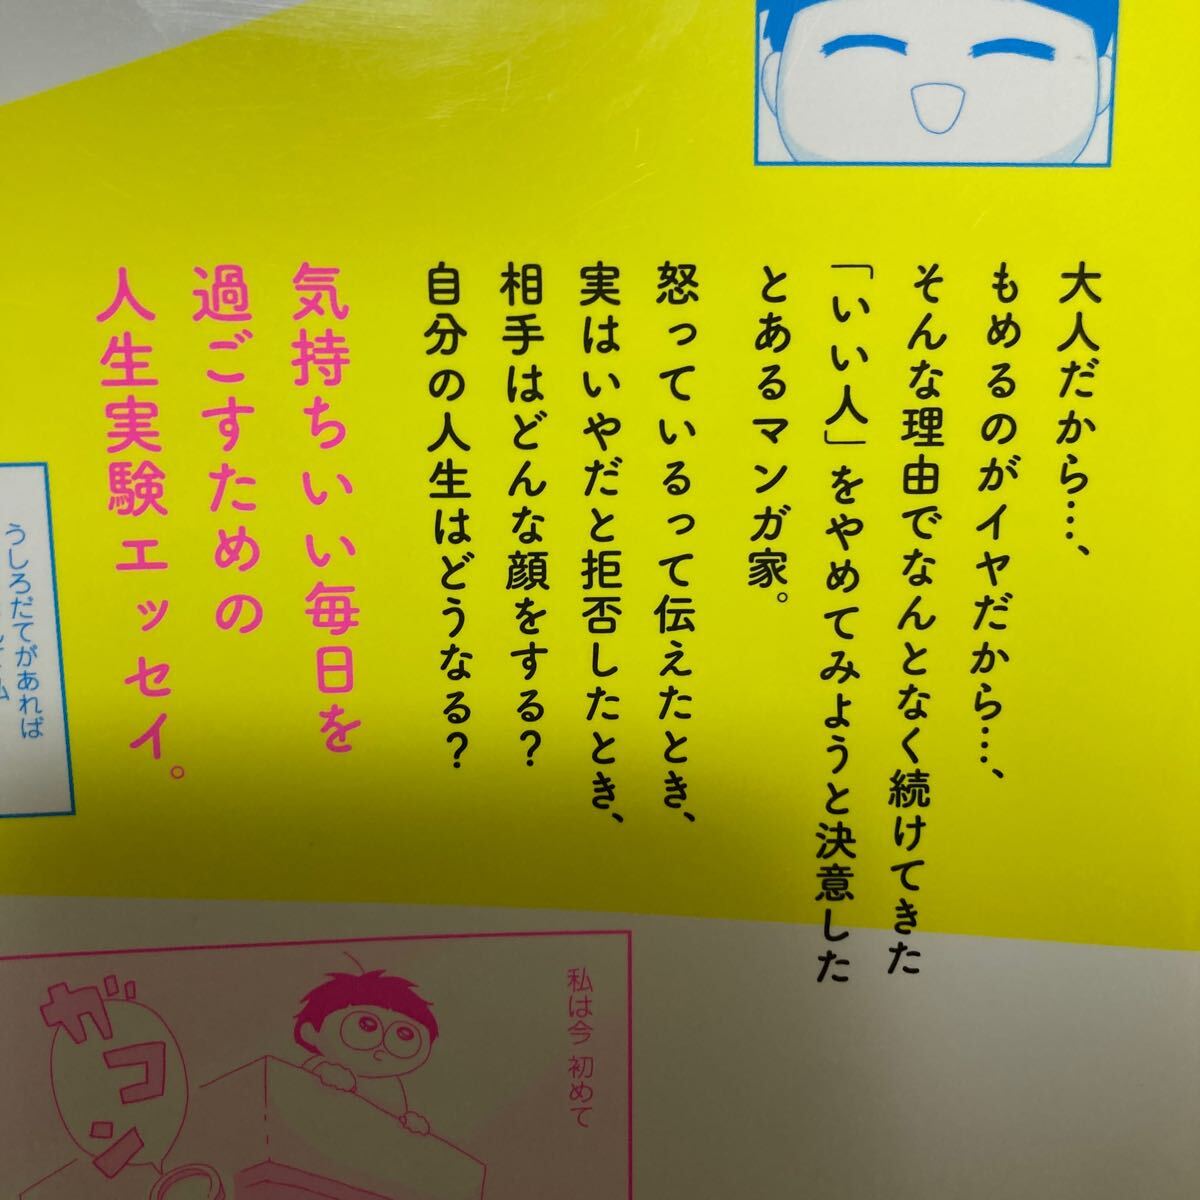 大人だから…、
もめるのがイヤだから…、
そんな理由でなんとなく続けてきた
「いい人」をやめてみようと決意した
とあるマンガ家。
怒っているって伝えたとき、
実はいやだと拒否したとき、
相手はどんな顔をする?
自分の人生はどうなる?
気持ちいい毎日を
過ごすための
人生実験エッセイ。
うしろだてがあれば
私は今 初めて
ガコン